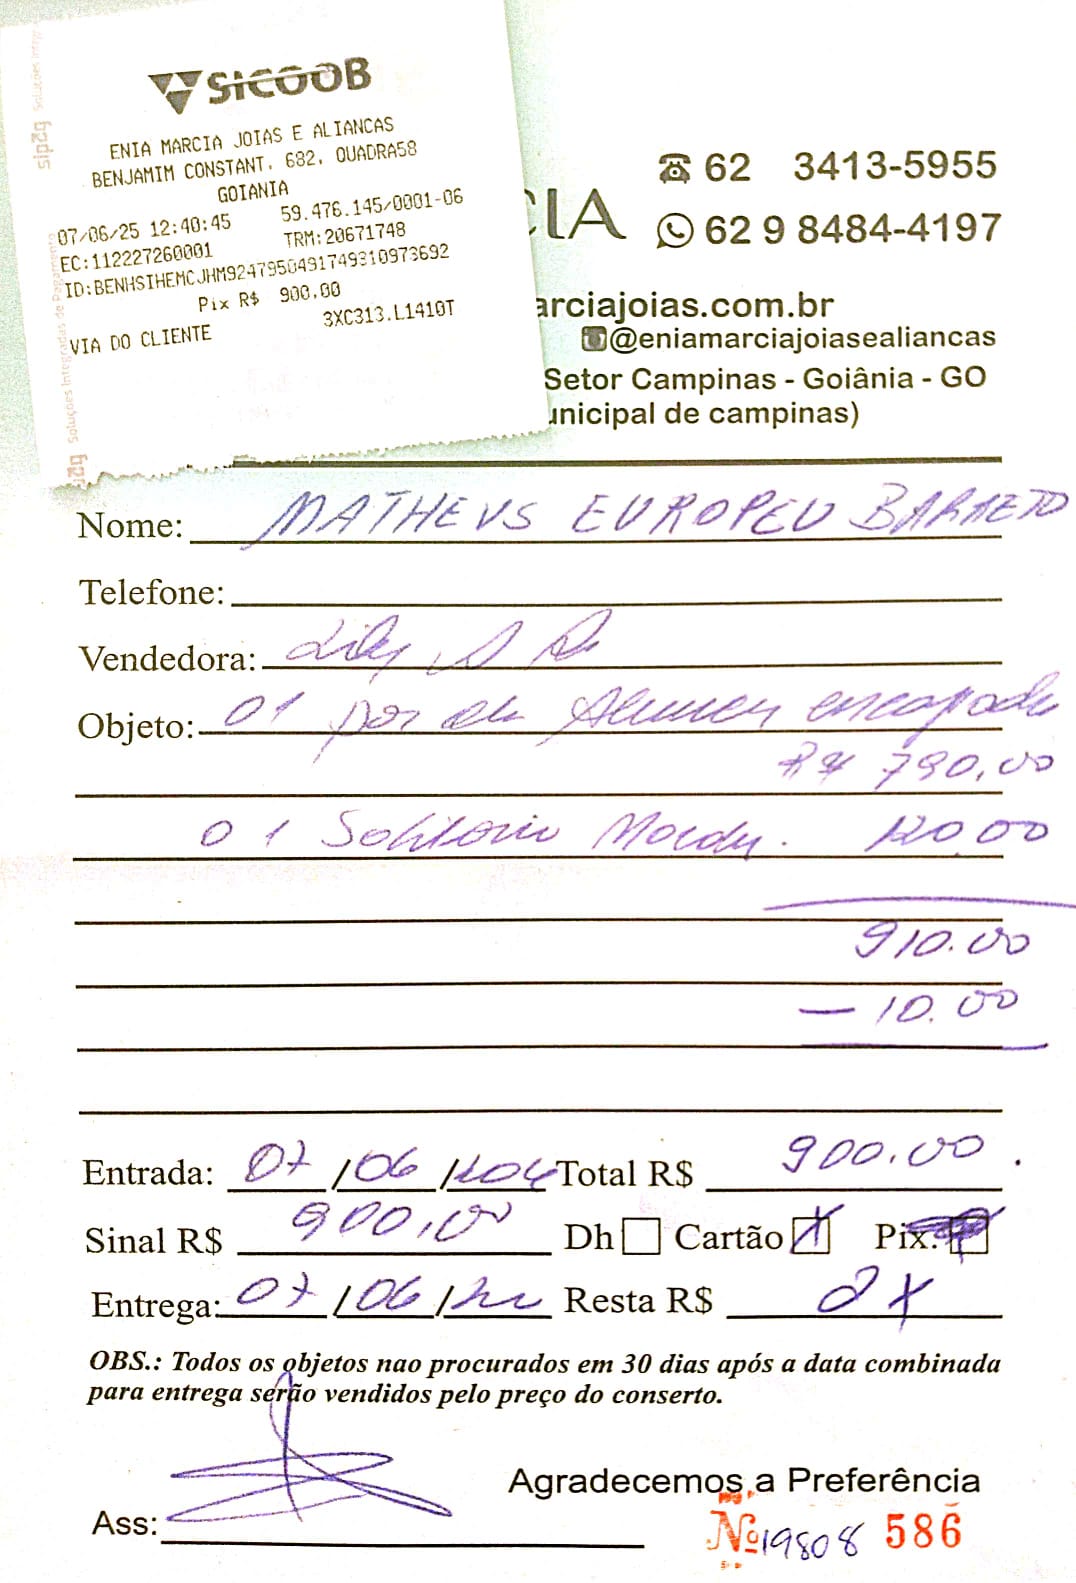 SICOOB
ENIA MARCIA JOIAS E ALIANCAS
BENJAMIM CONSTANT, 682, QUADRA58
GOIANIA
07/06/25 12:40:45 59.476.145/0001-06
EC:112227260001 TRM:20671748
ID:BENHSIHEMCJHM9247950491749310973692
Pix R$ 900,00
VIA DO CLIENTE 3XC313.L1410T
sipag Soluções Integradas de Pagamento
CIA
62 3413-5955
62 9 8484-4197
arciajoias.com.br
@eniamarciajoiasealiancas
Setor Campinas - Goiânia - GO
unicipal de campinas)
Nome: MATHEUS EUROPEU BARRETO
Telefone:
Vendedora:
Objeto: 01 par de encapada
R$ 790,00
01 Solitário 120,00
910.00
- 10.00
Entrada: 07/06/ Total R$ 900,00.
Sinal R$ 900,00 Dh Cartão X Pix.
Entrega: 07/06/ Resta R$
OBS.: Todos os objetos nao procurados em 30 dias após a data combinada
para entrega serão vendidos pelo preço do conserto.
Agradecemos a Preferência
Ass:
Nº 19808 586